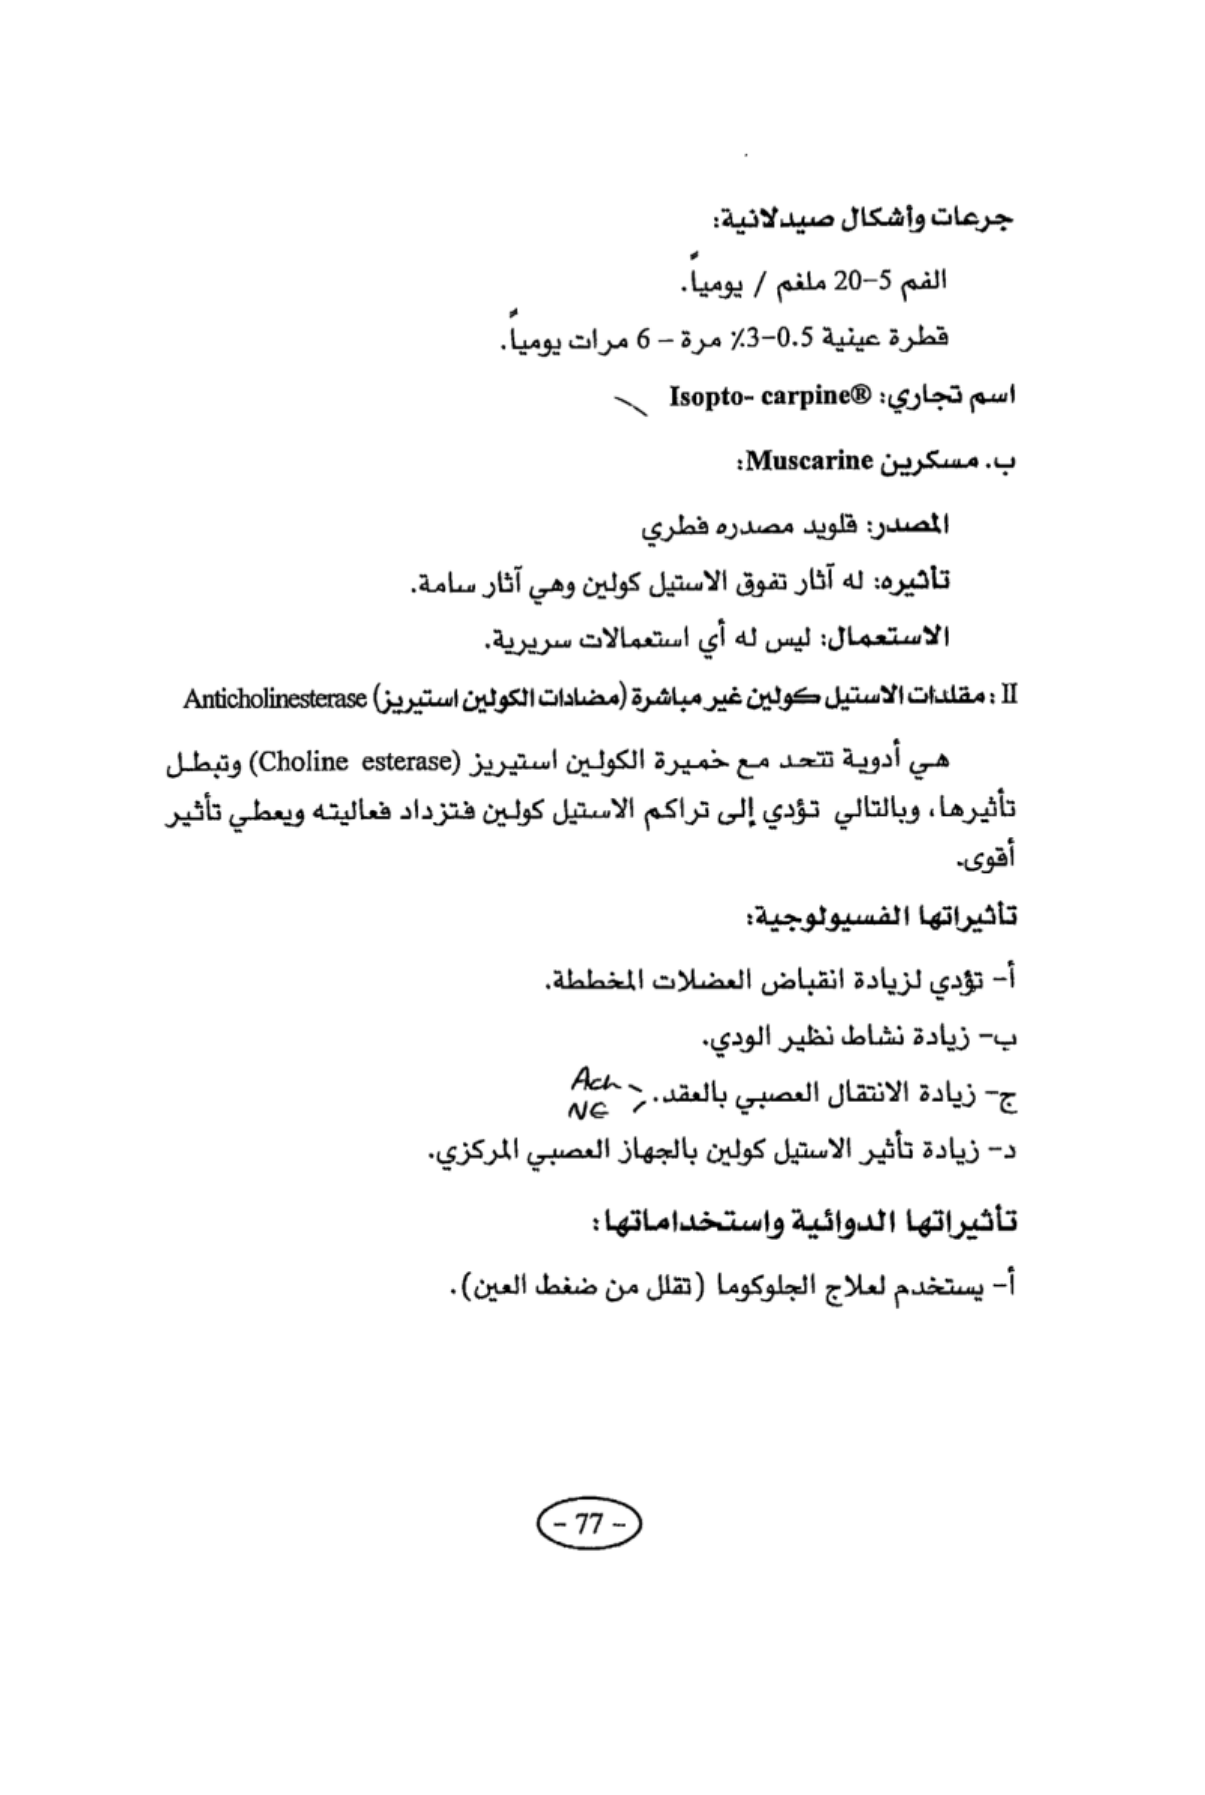 جرعات وأشكال صيدلانية:
الفم 5–20 ملغم / يومياً.
قطرة عينية 0.5–3٪ مرة – 6 مرات يومياً.
اسم تجاري: Isopto- carpine®
ب. مسكرين Muscarine:
المصدر: قلويد مصدره فطري
تأثيره: له آثار تفوق الاستيل كولين وهي آثار سامة.
الاستعمال: ليس له أي استعمالات سريرية.
II : مقلدات الاستيل كولين غير مباشرة (مضادات الكولين استيريز) Anticholinesterase
هي أدوية تتحد مع خميرة الكولين استيريز (Choline esterase) وتبطل
تأثيرها، وبالتالي تؤدي إلى تراكم الاستيل كولين فتزداد فعاليته ويعطي تأثير
أقوى.
تأثيراتها الفسيولوجية:
أ– تؤدي لزيادة انقباض العضلات المخططة.
ب– زيادة نشاط نظير الودي.
ج– زيادة الانتقال العصبي بالعقد. Ach
NE
د– زيادة تأثير الاستيل كولين بالجهاز العصبي المركزي.
تأثيراتها الدوائية واستخداماتها:
أ– يستخدم لعلاج الجلوكوما (تقلل من ضغط العين).
– 77 –